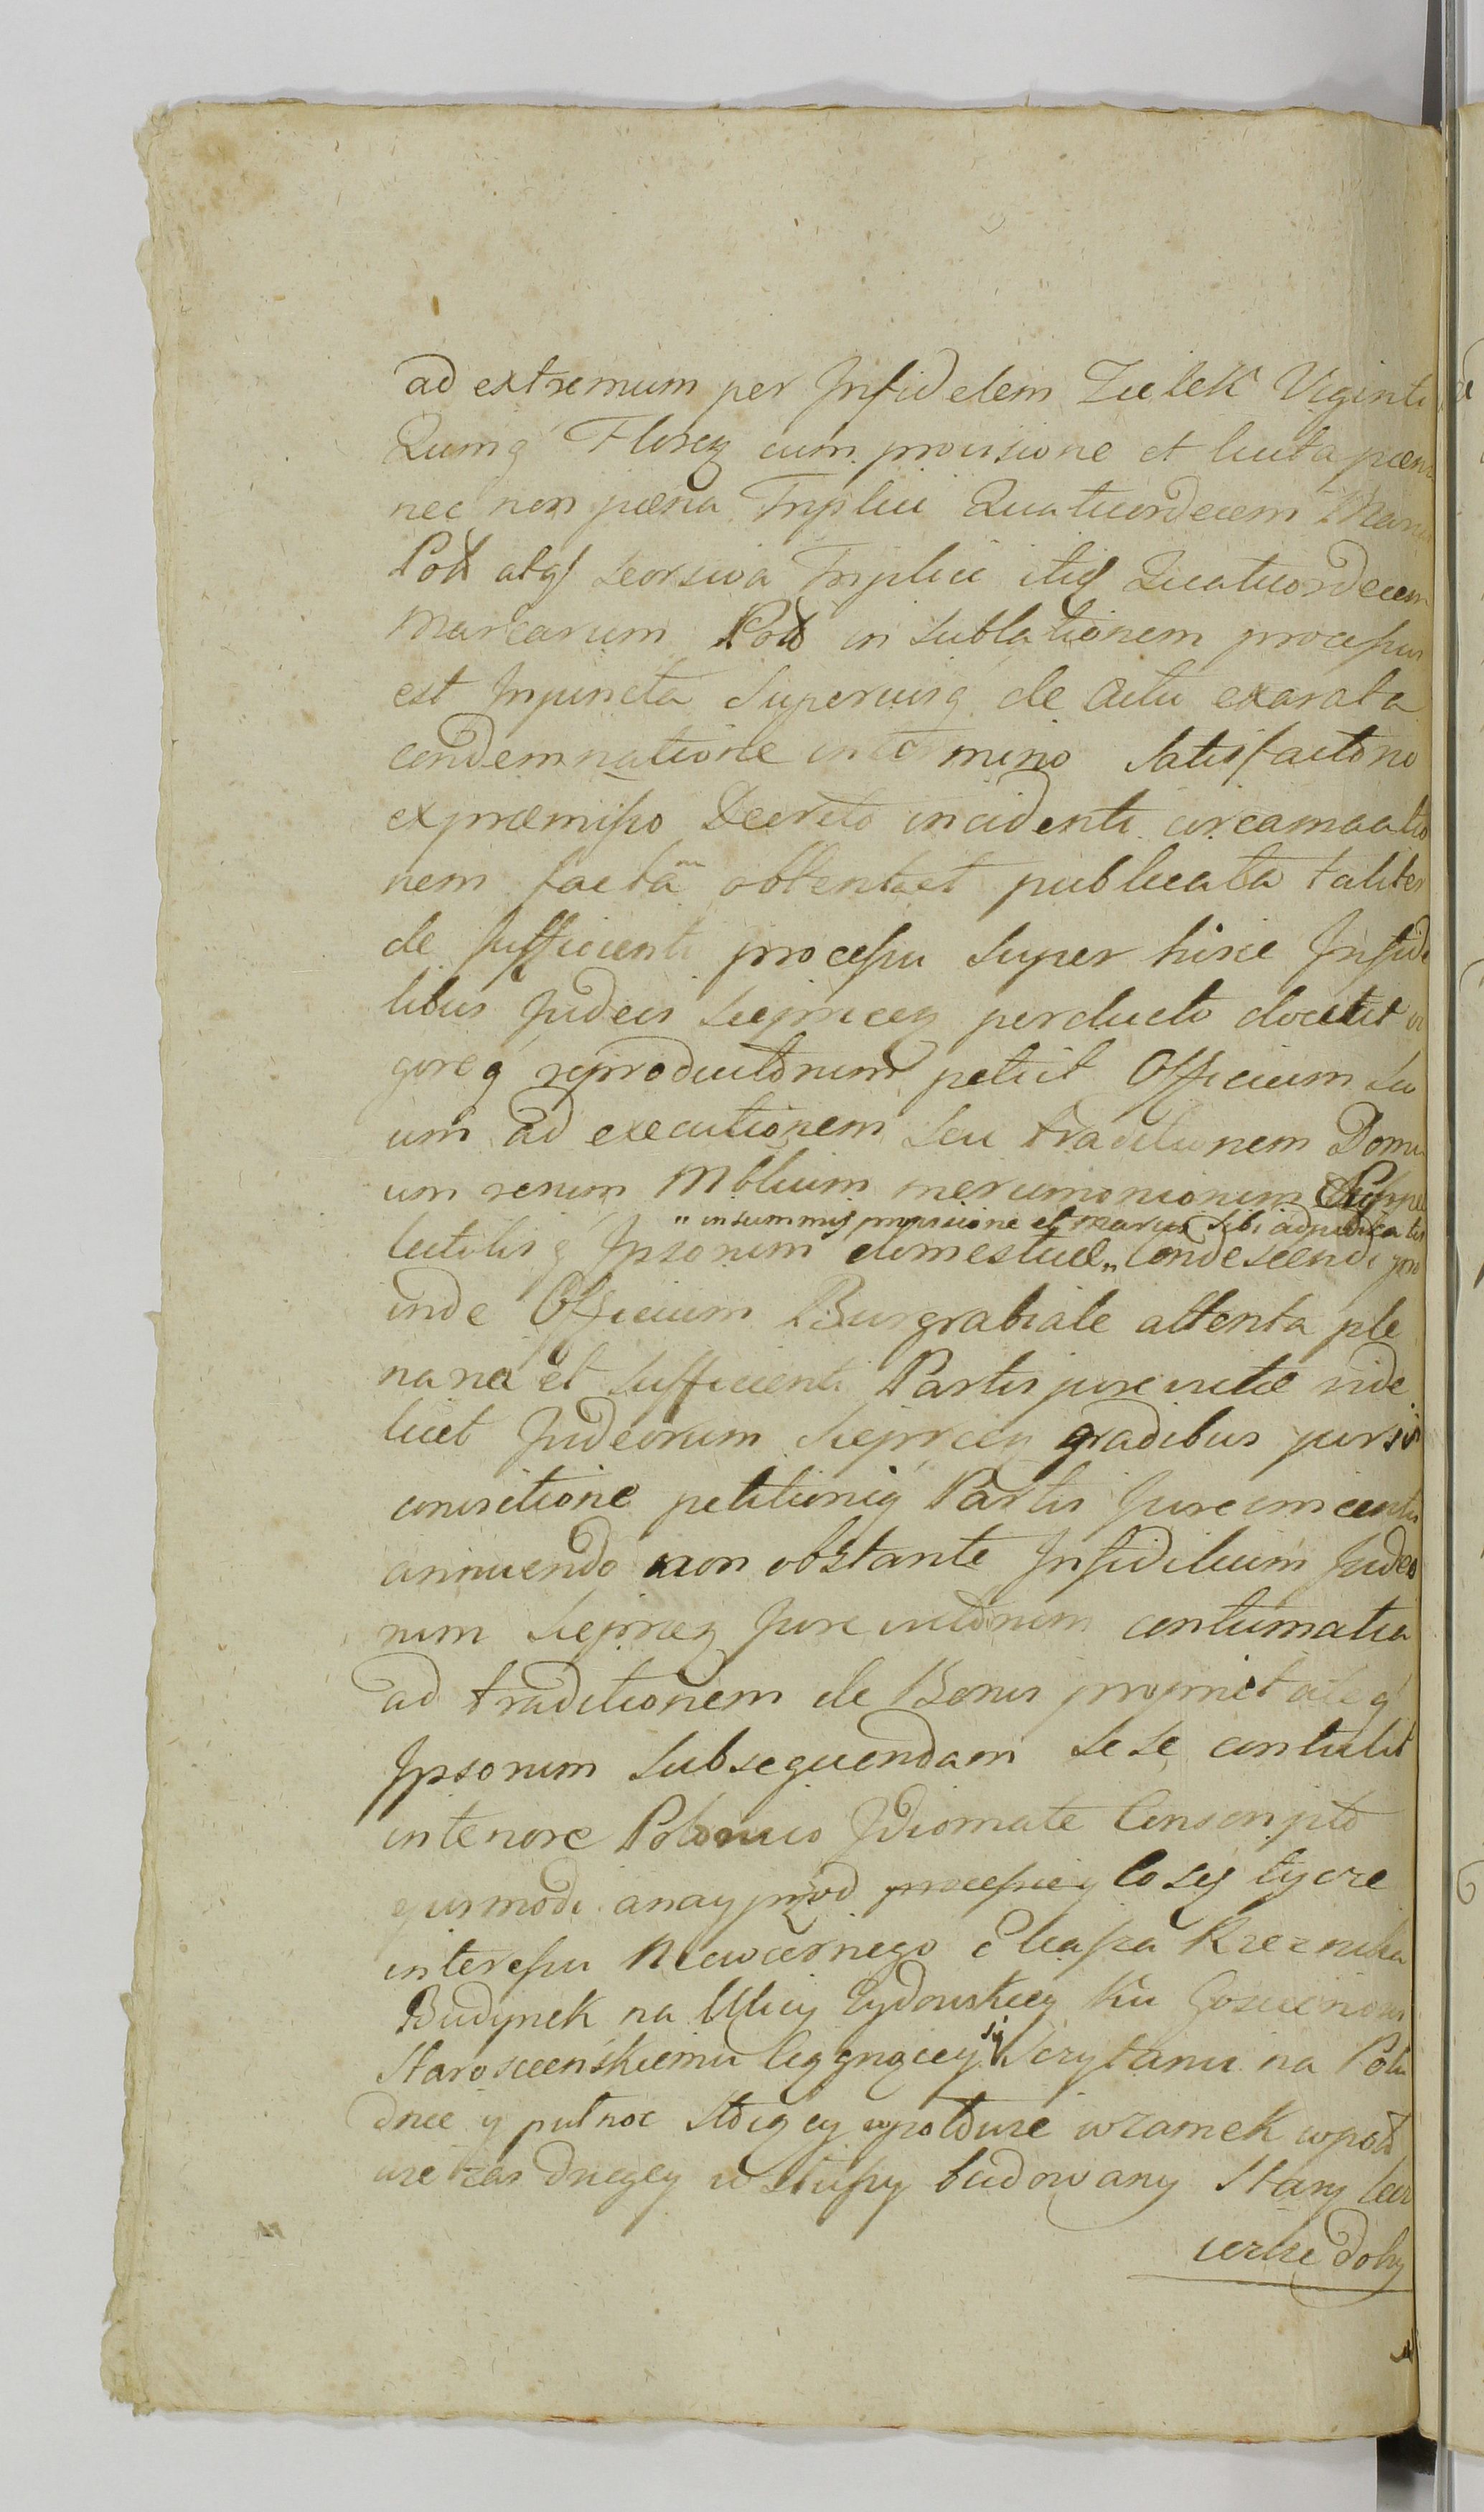 ad extremum per Infidelem Zielek Viginti
Quinq Florez cum provisione et luita pæna
nec non pæna Triplici Quatuordecem Marc
Pol atqs seorsiva Triplici itid Quatuordecem
Marcarum Pol in sublationem processus
est Injuncta superviisq de actu exarata
condemnatione in termino satisfactorio
ex præmisso Decreto incidenti circa
nem facta obtenta et publicata taliter
de sufficienti processu super hisce Infide
libus Judeis supracz perducto docuit vi
goreq reproductorum petiit Officium su
um ad executionem seu traditionem Domu
um rerum Mblium
"in summis provisione et marcis sibi adjudicatis
lectilisq Ipsorum domesticæ" Condescendi pro
inde Officium Burgrabiale attenta ple
naria et sufficienti Partis jure victæ vide
licet Judeorum supracz gradibus juris
convictione petitioniq Partis Jure vincentis
annuendo non obstante Infidelium Judeo
rum supracz Jure victorum contumatia
ad traditionem de Bonis proprietateq
Ipsorum subsequendam sese contulit
in tenore Polonico Idiomate Conscripto
ejusmodi. a nayprzod processiey co się tycze
interessu Niewiernego Eliasza Rzeznika
Budynek na Ulicy Zydowskiey ku Goscincowi
Staroscienskiemu ciągnącey się Sczytami na Polu
dnie y pułnoc stoiący w połowie w zamek w poło
wie zas drugiey w słupy budowany Stary